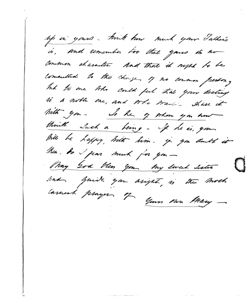 up in yours. Think how much your Father's
is. And remember too that yours is no
common character. And that it ought to be
committed to the charge of no common person,
but to one who could feel that your destiny
is a noble one, and who would share it
with you. Is he of whom you now
think such a being. If he is, you
will be happy with him, if you doubt it
then, do I fear much for you —
May God bless you my sweet Sister
and guide you aright, is the most
earnest prayer of Yours own Mary —